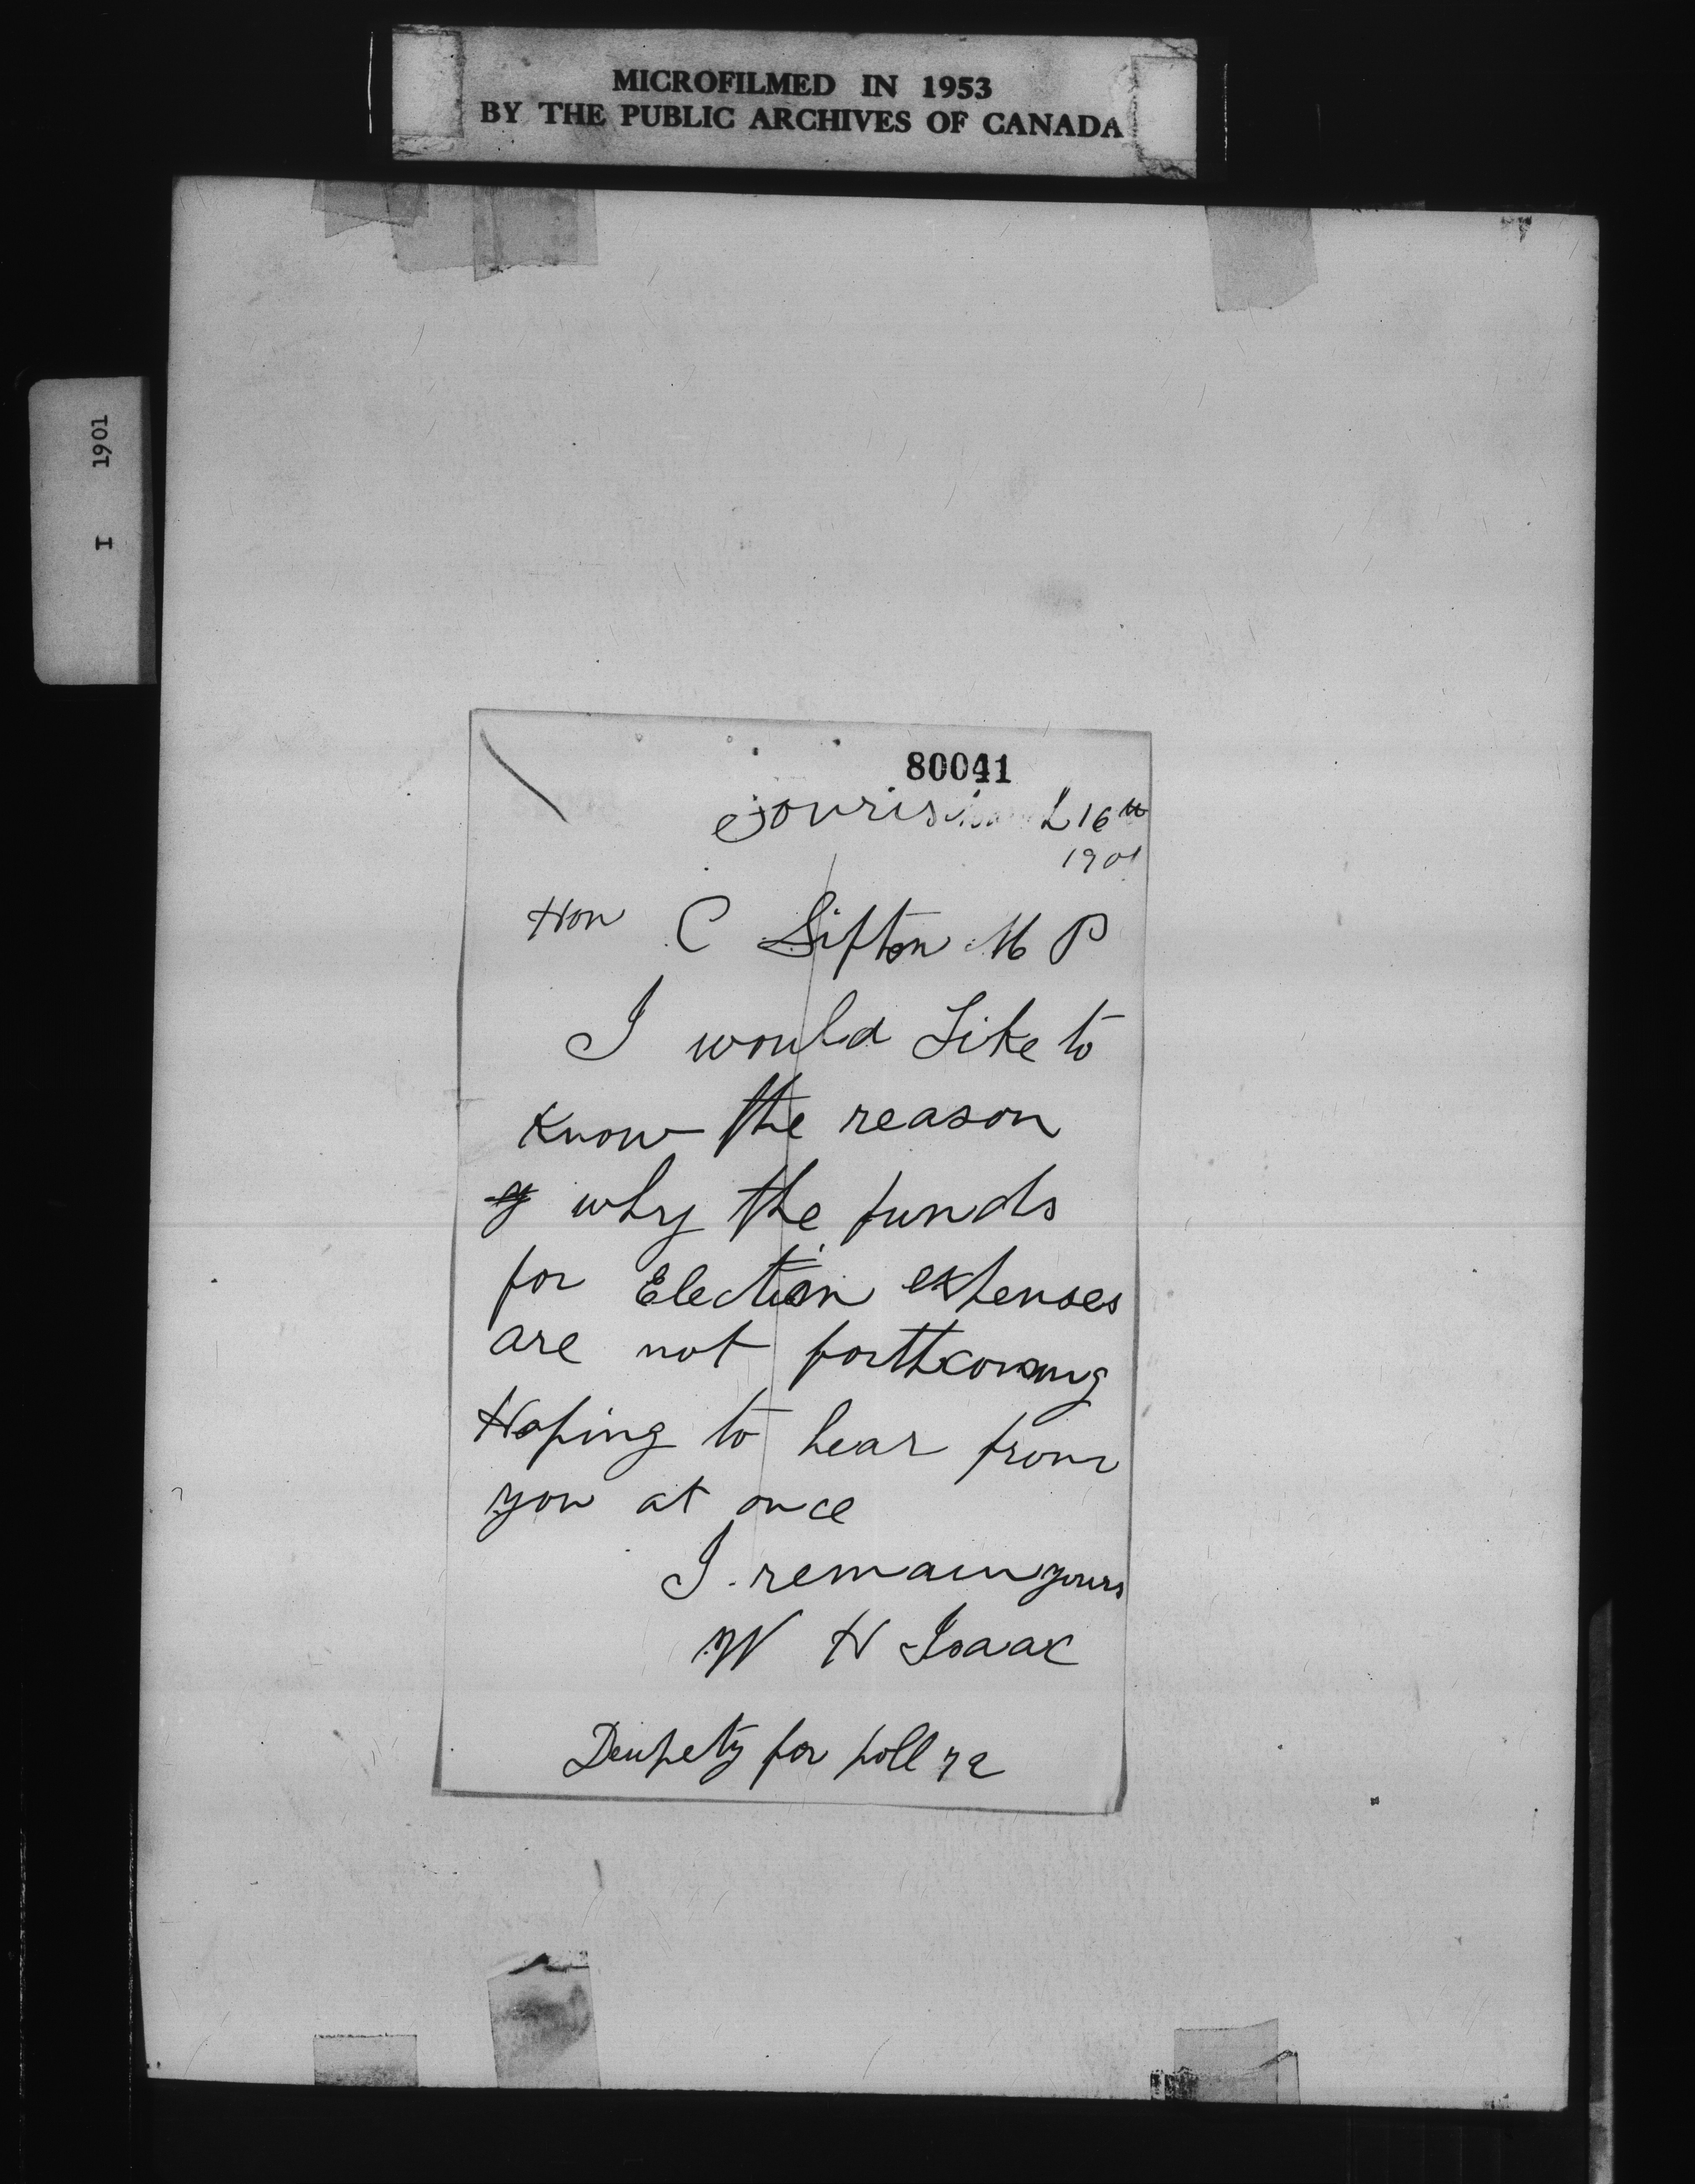 MICROFILMED IN 1953
BY THE PUBLIC ARCHIVES OF CANADA
I 1901
80041
Souris 16th
1901
Hon C Sifton M P
I would Like to
Know the reason
why the funds
for Election expenses
are not forthcoming
Hoping to hear from
you at once
I remain yours
W H Isaac
Deupety for poll 72